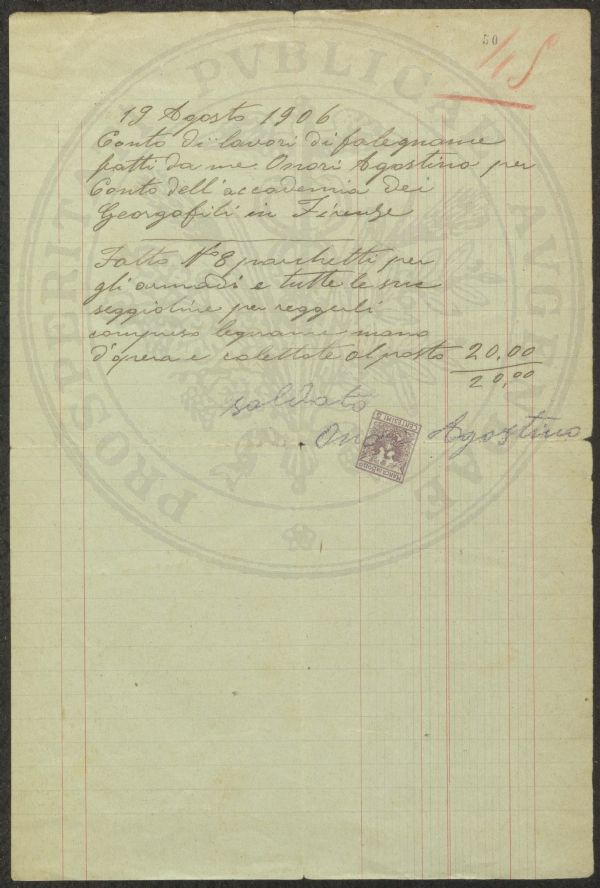 50
115
19 Agosto 1906
Conto di lavori di falegname
fatti da me Onori Agostino per
Conto dell'accademia dei
Georgofili in Firenze
Fatto N° 8 parchetti per
gli armadi e tutte le sue
seggioline per reggerli
compreso legname mano
d'opera e colettote al posto 20,00
20,00
saldato
Agostino
MARCA DA BOLLO
CENTESIMI 5
PROSPERITATI PVBLICAE AVGENDAE